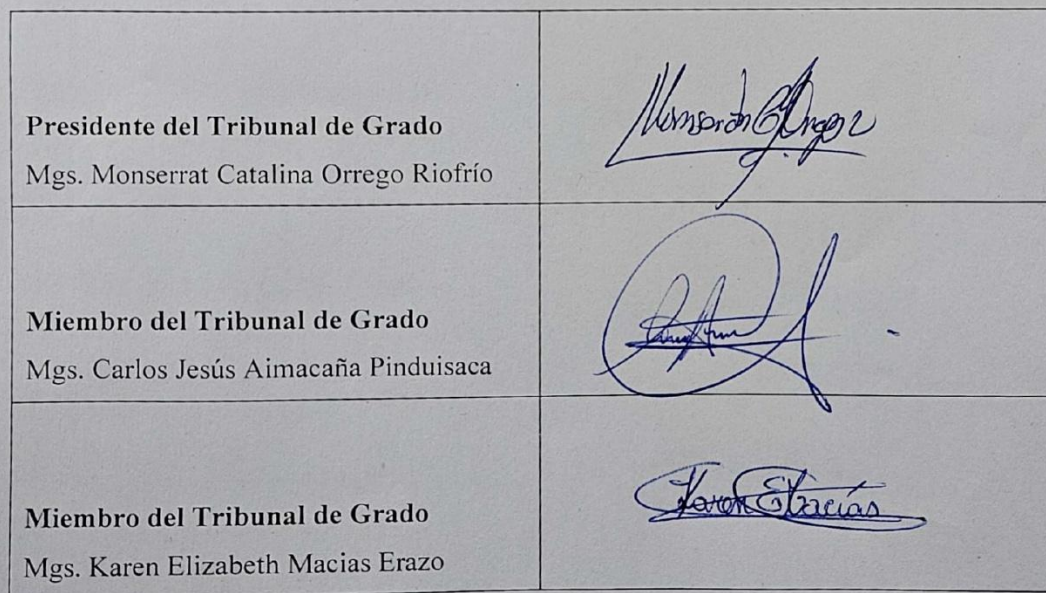 Presidente del Tribunal de Grado
Mgs. Monserrat Catalina Orrego Riofrío
Miembro del Tribunal de Grado
Mgs. Carlos Jesús Aimacaña Pinduisaca
Miembro del Tribunal de Grado
Mgs. Karen Elizabeth Macias Erazo